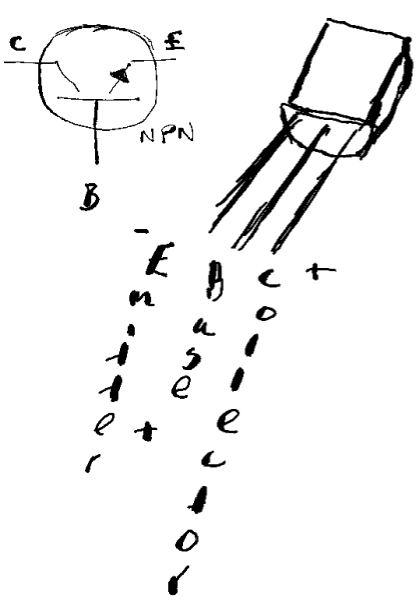 C E
NPN
B
- +
Emitter
Base
Collector
+